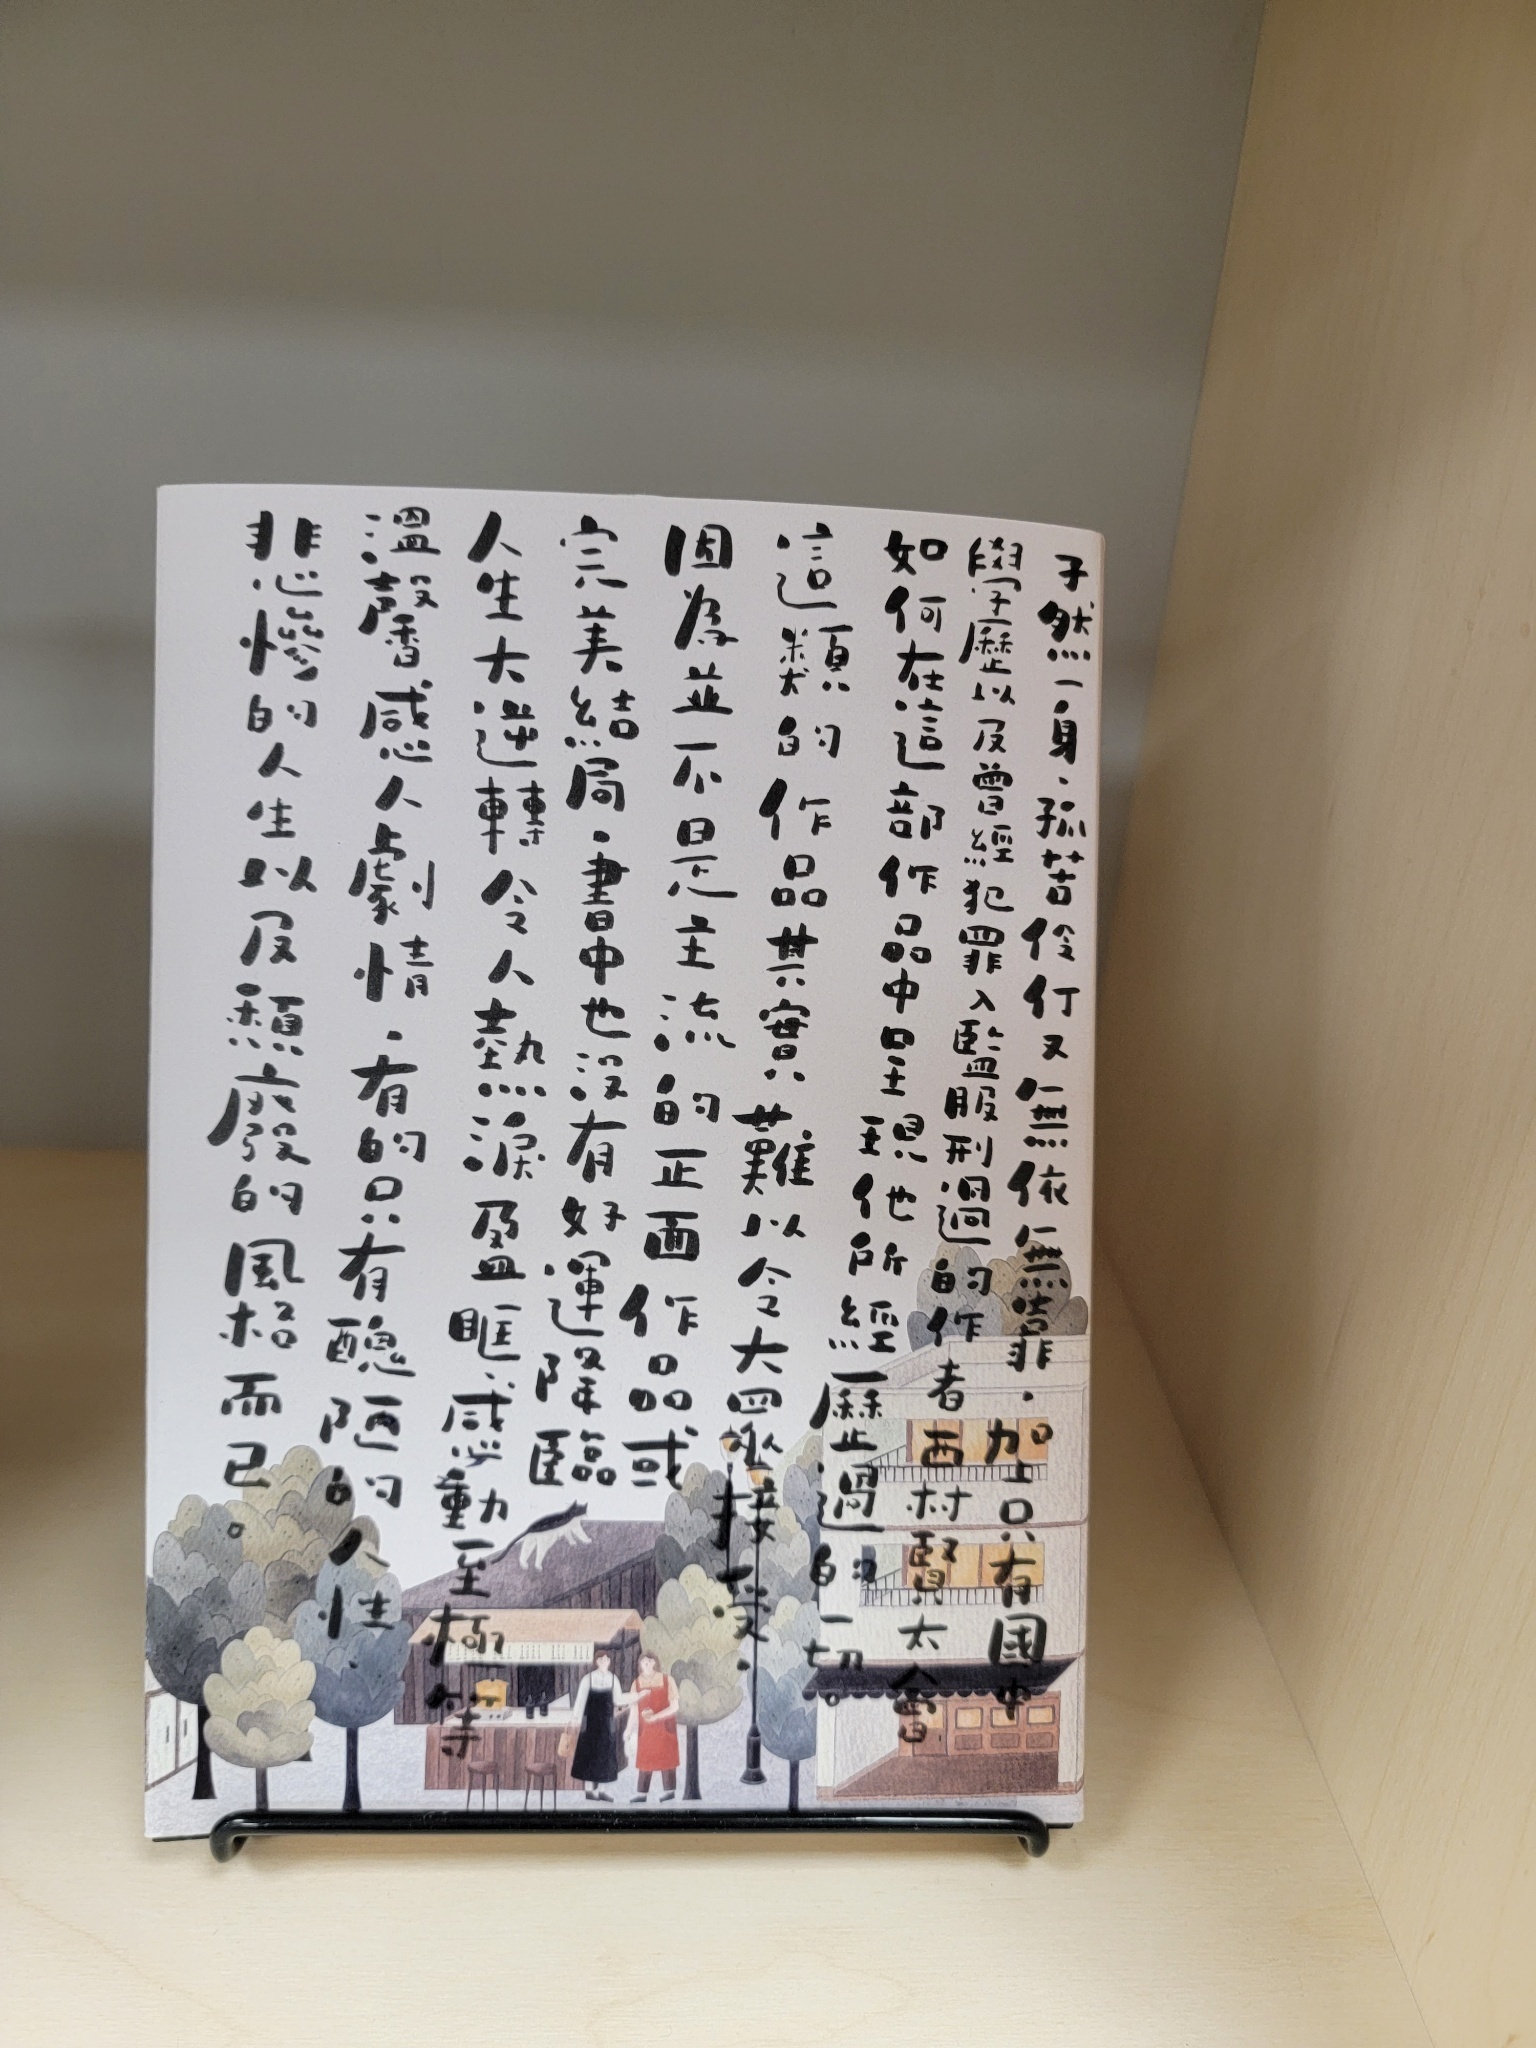 孑然一身,孤苦伶仃又無依無靠,加上只有國中
學歷以及曾經犯罪入監服刑過的作者西村賢太會
如何在這部作品中呈現他所經歷過的一切。
這類的作品其實難以令大眾接受,
因為並不是主流的正面作品或
完美結局,書中也沒有好運降臨
人生大逆轉令人熱淚盈眶、感動至極等
溫馨感人劇情,有的只有醜陋的人性、
悲慘的人生以及頹廢的風格而已。